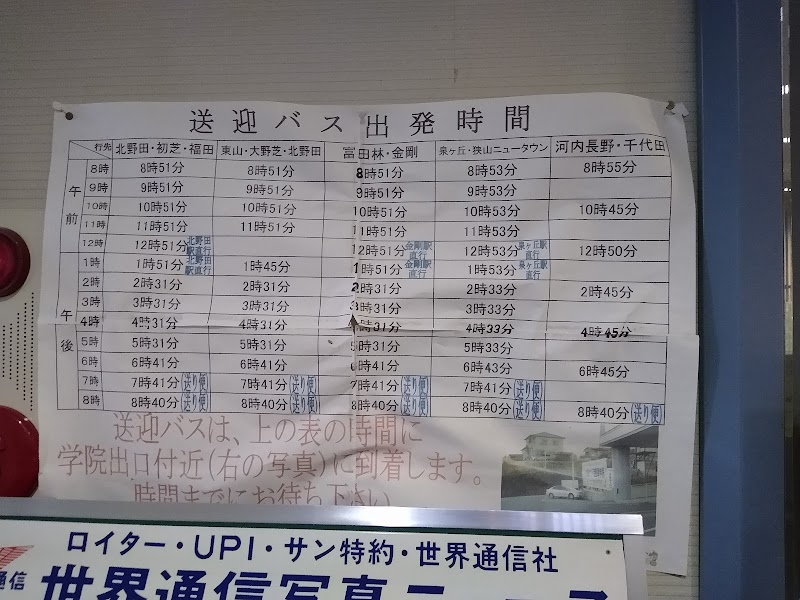 送迎バス出発時間
行先 北野田・初芝・福田 東山・大野芝・北野田 富田林・金剛 泉ヶ丘・狭山ニュータウン 河内長野・千代田
午前
8時 8時51分 8時51分 8時51分 8時53分 8時55分
9時 9時51分 9時51分 9時51分 9時53分
10時 10時51分 10時51分 10時51分 10時53分 10時45分
11時 11時51分 11時51分 11時51分 11時53分
12時 12時51分 北野田駅直行 12時51分 金剛駅直行 12時53分 泉ヶ丘駅直行 12時50分
午後
1時 1時51分 北野田駅直行 1時45分 1時51分 金剛駅直行 1時53分 泉ヶ丘駅直行
2時 2時31分 2時31分 2時31分 2時33分 2時45分
3時 3時31分 3時31分 3時31分 3時33分
4時 4時31分 4時31分 4時31分 4時33分 4時45分
5時 5時31分 5時31分 5時31分 5時33分
6時 6時41分 6時41分 6時41分 6時43分 6時45分
7時 7時41分(送り便) 7時41分(送り便) 7時41分(送り便) 7時41分(送り便)
8時 8時40分(送り便) 8時40分(送り便) 8時40分(送り便) 8時40分(送り便) 8時40分(送り便)
送迎バスは、上の表の時間に
学院出口付近(右の写真)に到着します。
時間までにお待ち下さい
ロイター・UPI・サン特約・世界通信社
通信 世界通信写真ニュース